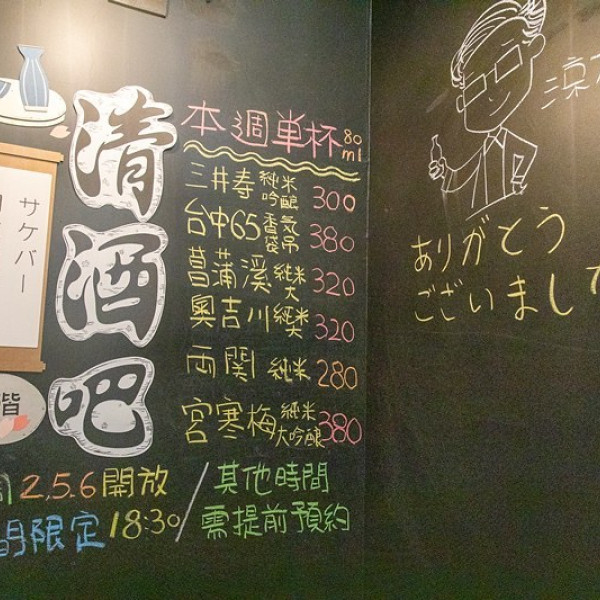 清酒吧
サケバー
階
本週単杯 80ml
三井寿 純米吟釀 300
台中65 香氣袋吊 380
菖蒲溪 純米大 320
奧吉川 純米大 320
両関 純米 280
宮寒梅 純米大吟釀 380
2.5.6開放
限定 18:30
/其他時間
需提前預約
ありがとう
ございまし